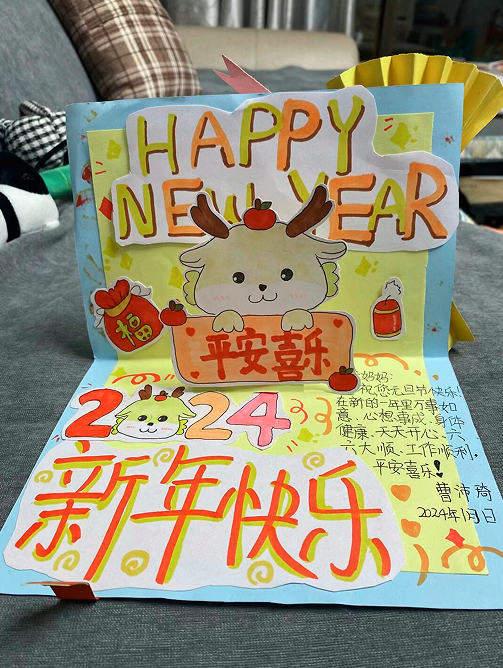 HAPPY
NEW YEAR
福
平安喜乐
2024
妈妈:
祝您元旦节快乐!
在新的一年里万事如
意、心想事成、身体
健康、天天开心、六
六大顺、工作顺利,
平安喜乐!
曹沛琦
2024年1月1日
新年快乐